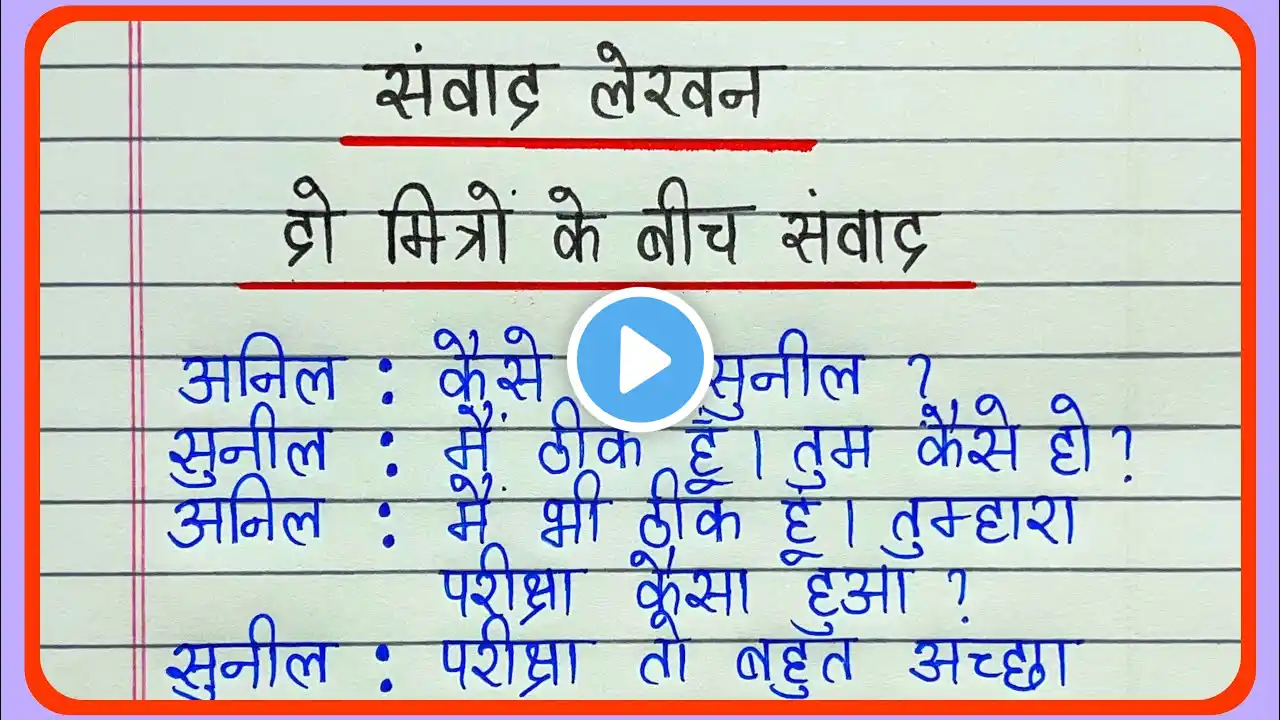 संवाद लेखन
दो मित्रों के बीच संवाद
अनिल : कैसे सुनील ?
सुनील : मैं ठीक हूँ। तुम कैसे हो ?
अनिल : मैं भी ठीक हूँ। तुम्हारा
परीक्षा कैसा हुआ ?
सुनील : परीक्षा तो बहुत अच्छा